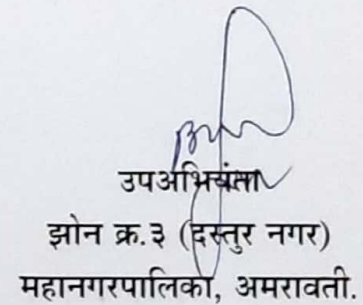 उपअभियंता
झोन क्र.३ (दस्तुर नगर)
महानगरपालिका, अमरावती.